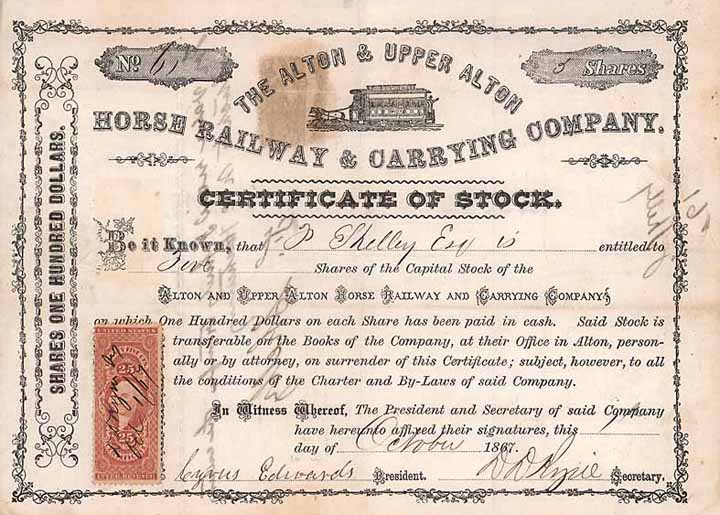 No 6,
5 Shares
THE ALTON & UPPER ALTON
HORSE RAILWAY & CARRYING COMPANY.
CERTIFICATE OF STOCK.
SHARES ONE HUNDRED DOLLARS.
Be it Known, that J. P. Shelley Esq is entitled to
Five Shares of the Capital Stock of the
ALTON AND UPPER ALTON HORSE RAILWAY AND CARRYING COMPANY,
on which One Hundred Dollars on each Share has been paid in cash. Said Stock is
transferable on the Books of the Company, at their Office in Alton, person-
ally or by attorney, on surrender of this Certificate; subject, however, to all
the conditions of the Charter and By-Laws of said Company.
In Witness Whereof, The President and Secretary of said Company
have hereunto affixed their signatures, this
day of October 1867.
Cyrus Edwards President. Secretary.
UNITED STATES
25
25
INTER. REVENUE